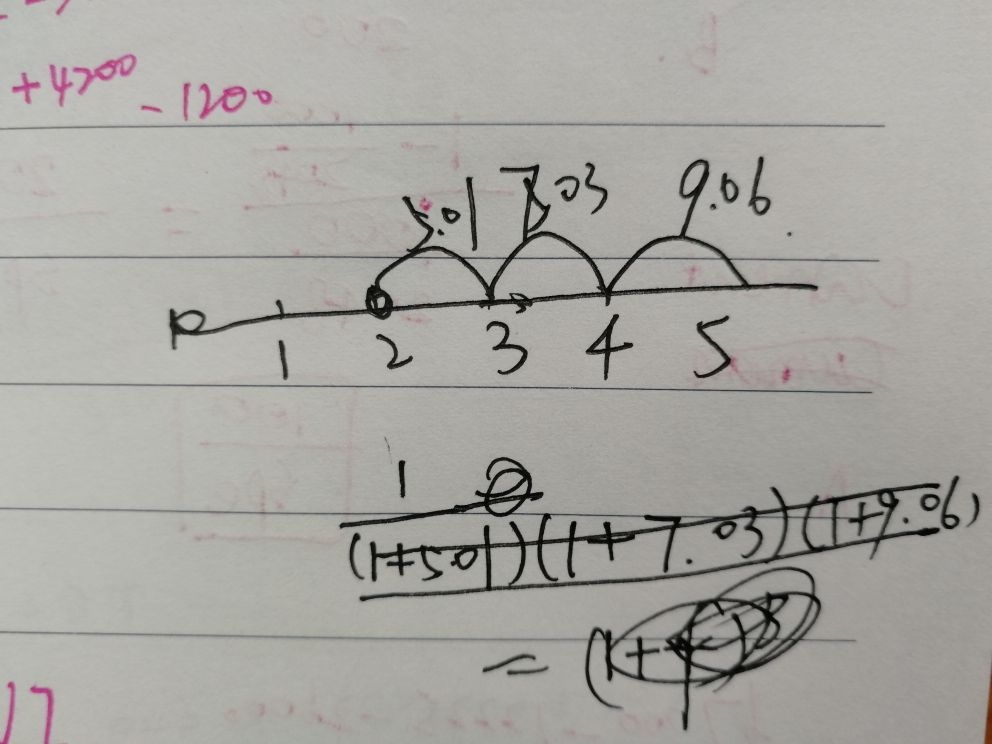 +4200 -1200
5.01 7.03 9.06
1 2 3 4 5
1
(1+5.01)(1+7.03)(1+9.06)
= (1+
17